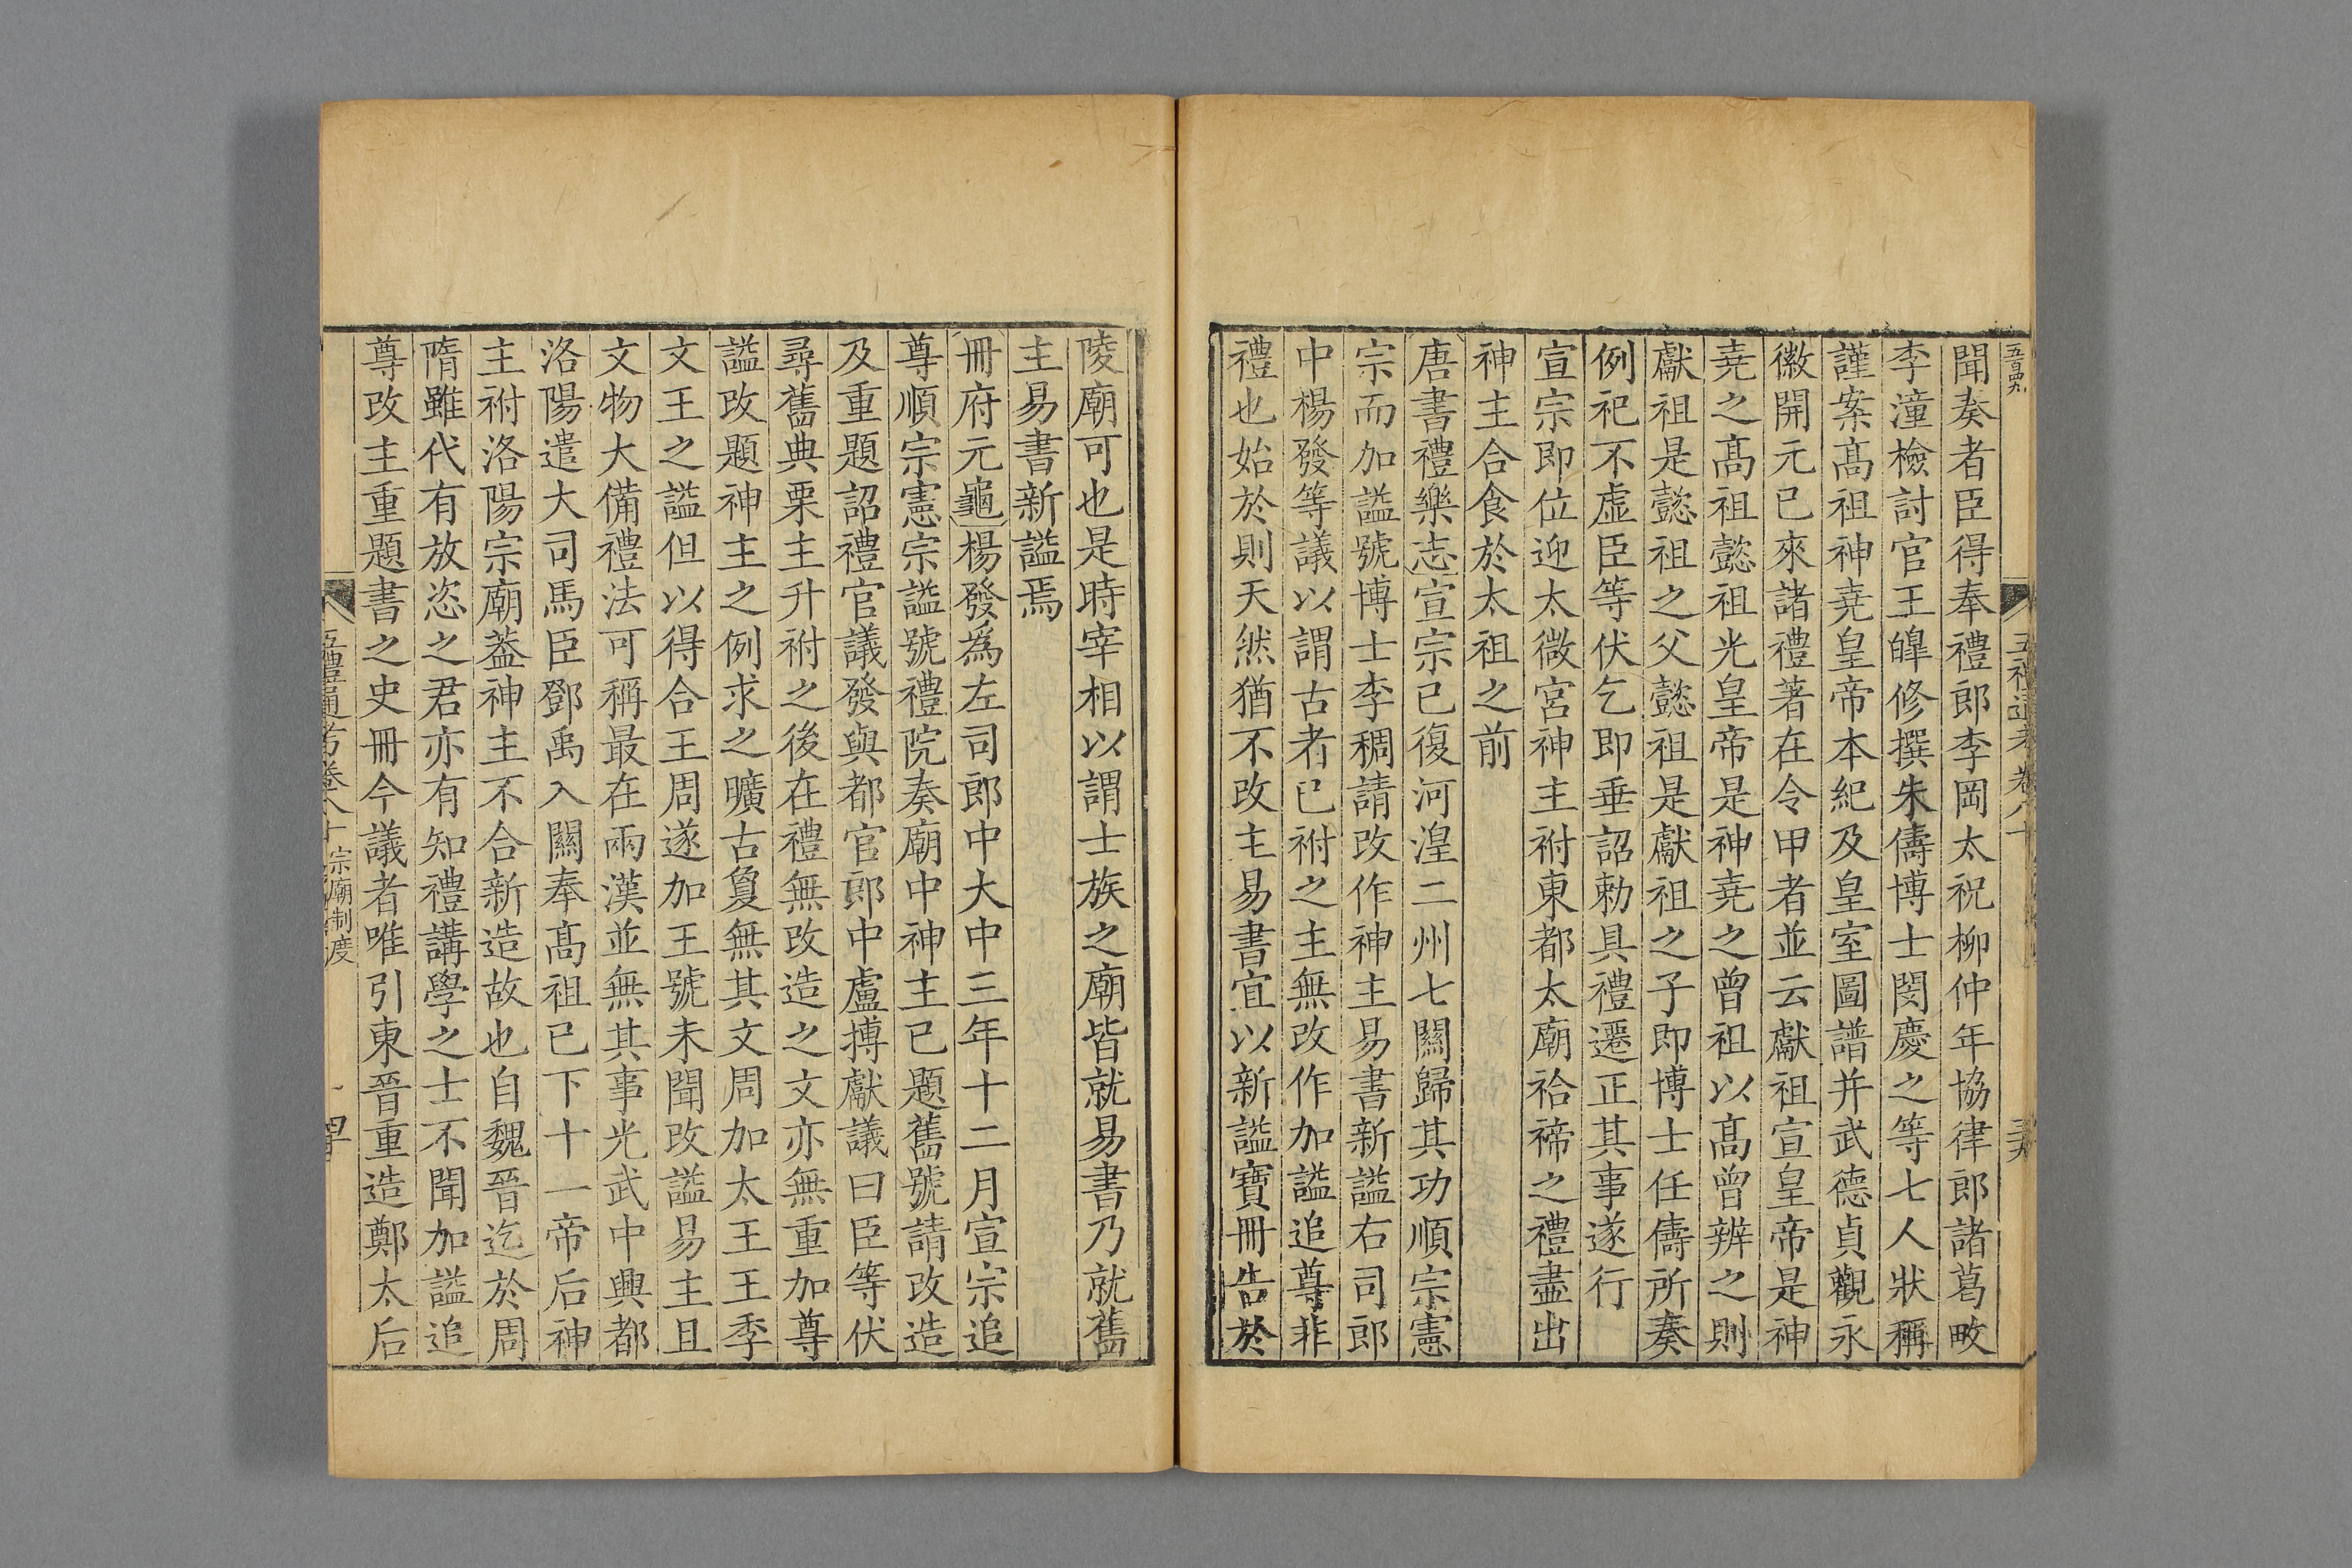 聞奏者臣得奉禮郎李岡太祝柳仲年協律郎諸葛畋
李潼檢討官王皥修撰朱儔博士閔慶之等七人狀稱
謹案高祖神堯皇帝本紀及皇室圖譜并武德貞觀永
徽開元已來諸禮著在令甲者並云獻祖宣皇帝是神
堯之高祖懿祖光皇帝是神堯之曾祖以高曾辨之則
獻祖是懿祖之父懿祖是獻祖之子即博士任儔所奏
例祀不虛臣等伏乞即垂詔勅具禮遷正其事遂行
宣宗即位迎太微宮神主祔東都太廟祫禘之禮盡出
神主合食於太祖之前
唐書禮樂志宣宗已復河湟二州七關歸其功順宗憲
宗而加諡號博士李稠請改作神主易書新諡右司郎
中楊發等議以謂古者已祔之主無改作加諡追尊非
禮也始於則天然猶不改主易書宜以新諡寶冊告於
陵廟可也是時宰相以謂士族之廟皆就易書乃就舊
主易書新諡焉
冊府元龜楊發爲左司郎中大中三年十二月宣宗追
尊順宗憲宗諡號禮院奏廟中神主已題舊號請改造
及重題詔禮官議發與都官郎中盧搏獻議曰臣等伏
尋舊典栗主升祔之後在禮無改造之文亦無重加尊
諡改題神主之例求之曠古敻無其文周加太王王季
文王之諡但以得合王周遂加王號未聞改諡易主且
文物大備禮法可稱最在兩漢並無其事光武中興都
洛陽遣大司馬臣鄧禹入關奉高祖已下十一帝后神
主祔洛陽宗廟葢神主不合新造故也自魏晉迄於周
隋雖代有放恣之君亦有知禮講學之士不聞加諡追
尊改主重題書之史冊今議者唯引東晉重造鄭太后
五禮通考卷八十 宗廟制度